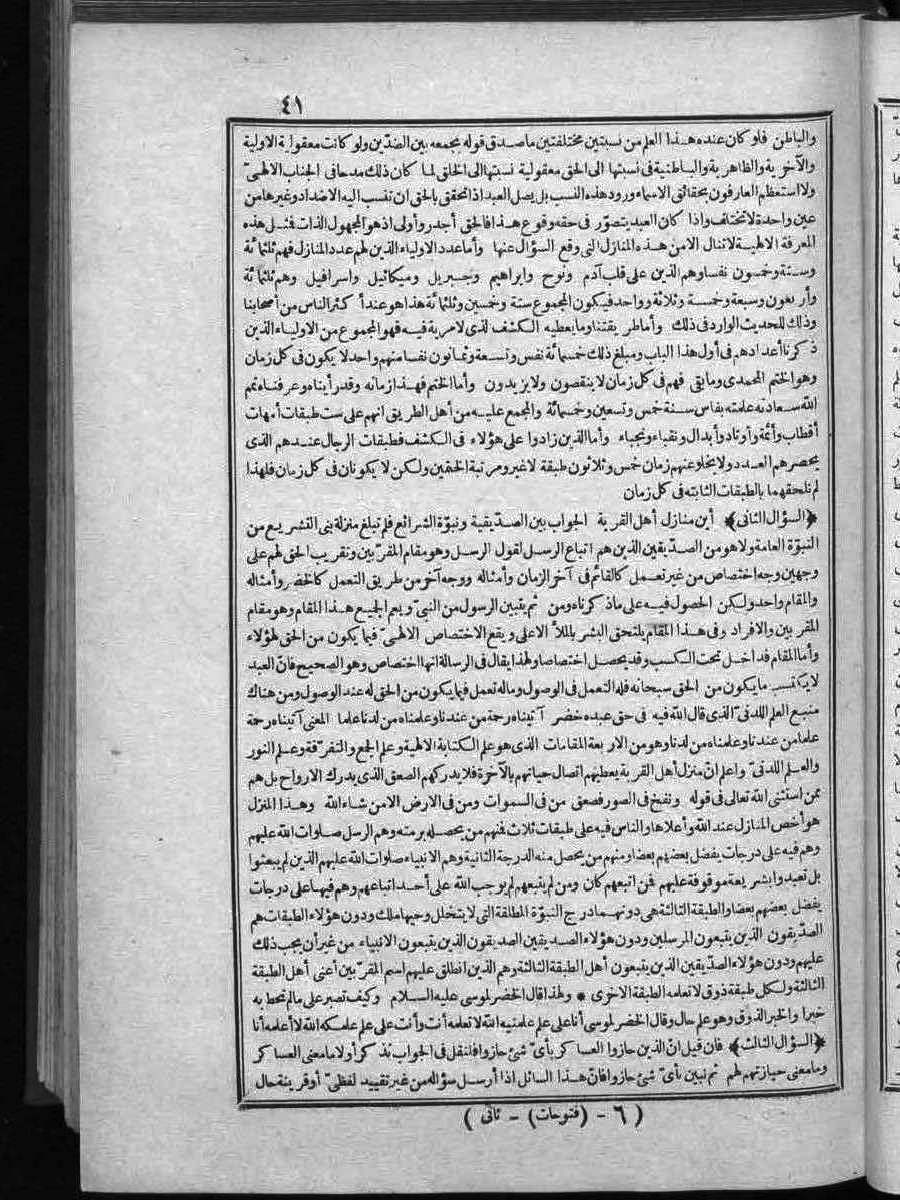 ٤١
والباطن فلو كان عنده هذا العلم من نسبتين مختلفتين ما صدق قوله بجمعه بين الضدّين ولو كانت معقولية الاولية
والآخرية والظاهرية والباطنية فى نسبتها الى الحق معقولية نسبتها الى الخلق لما كان ذلك مدحا فى الجناب الالهىّ
ولا استعظم العارفون بحقائق الاسماء ورود هذه النسب بل يصل العبد اذا تحقق بالحق ان تنسب اليه الاضداد وغيرها من
عين واحدة لا تختلف واذا كان العبد يتصوّر فى حقه وقوع هذا فالحق أجدر وأولى اذ هو المجهول الذات فمثل هذه
المعرفة الالهية لا تنال الا من هذه المنازل التى وقع السؤال عنها وأما عدد الاولياء الذين لهم عدد المنازل فهم ثلثمائة
وستة وخمسون نفسا وهم الذين على قلب آدم ونوح وابراهيم وجبريل وميكائيل واسرافيل وهم ثلثمائة
وأربعون وسبعة وخمسة وثلاثة وواحد فيكون المجموع ستة وخمسين وثلثمائة هذا هو عند أكثر الناس من أصحابنا
وذلك للحديث الوارد فى ذلك وأما طريقتنا وما يعطيه الكشف الذى لا مرية فيه فهو المجموع من الاولياء الذين
ذكرنا أعدادهم فى أول هذا الباب ومبلغ ذلك خمسمائة نفس وتسعة وثمانون نفسا منهم واحد لا يكون فى كل زمان
وهو الختم المحمدى وما بقى فهم فى كل زمان لا ينقصون ولا يزيدون وأما الختم فهذا زمانه وقد رأيناه وعرفناه تمم
الله سعادته علمته بفاس سنة خمس وتسعين وخمسمائة والمجمع عليه من أهل الطريق انهم على ست طبقات أمهات
أقطاب وأئمة وأوتاد وأبدال ونقباء ونجباء وأما الذين زادوا على هؤلاء فى الكشف فطبقات الرجال عندهم الذى
يحصرهم العدد ولا يخلو عنهم زمان خمس وثلاثون طبقة لا غير ومرتبة الختمين ولكن لا يكونان فى كل زمان فلهذا
لم نلحقهما بالطبقات الثابتة فى كل زمان
﴿السؤال الثانى﴾ أين منازل أهل القربة الجواب بين الصدّيقية ونبوّة الشرائع فلم تبلغ منزلة نبى التشريع من
النبوّة العامة ولا هو من الصدّيقين الذين هم اتباع الرسل لقول الرسل وهو مقام المقرّبين وتقريب الحق لهم على
وجهين وجه اختصاص من غير تعمل كالقائم فى آخر الزمان وأمثاله ووجه آخر من طريق التعمل كالخضر وأمثاله
والمقام واحد ولكن الحصول فيه على ما ذكرناه ومن ثم يتبين الرسول من النبىّ ويعم الجميع هذا المقام وهو مقام
المقربين والافراد وفى هذا المقام يلتحق البشر بالملأ الاعلى ويقع الاختصاص الالهىّ فيما يكون من الحق لهؤلاء
وأما المقام فداخل تحت الكسب وقد يحصل اختصاصا ولهذا يقال فى الرسالة انها اختصاص وهو الصحيح فانّ العبد
لا يكتسب ما يكون من الحق سبحانه فله التعمل فى الوصول وماله تعمل فيما يكون من الحق له عند الوصول ومن هناك
منبع العلم اللدنىّ الذى قال الله فيه فى حق عبده خضر آتيناه رحمة من عندنا وعلمناه من لدنا علما المعنى آتيناه رحمة
علما من عندنا وعلمناه من لدنا وهو من الاربعة المقامات الذى هو علم الكتابة الالهية وعلم الجمع والتفرّقة وعلم النور
والعلم اللدنىّ واعلم انّ منزل أهل القربة يعطيهم اتصال حياتهم بالآخرة فلا يدركهم الصعق الذى يدرك الارواح بل هم
ممن استثنى الله تعالى فى قوله ونفخ فى الصور فصعق من فى السموات ومن فى الارض الا من شاء الله وهذا المنزل
هو أخص المنازل عند الله وأعلاها والناس فيه على طبقات ثلاث فمنهم من يحصله برمته وهم الرسل صلوات الله عليهم
وهم فيه على درجات يفضل بعضهم بعضا ومنهم من يحصل منه الدرجة الثانية وهم الانبياء صلوات الله عليهم الذين لم يبعثوا
بل تعبدوا بشريعة موقوفة عليهم فمن اتبعهم كان ومن لم يتبعهم لم يوجب الله على أحد اتباعهم وهم فيها على درجات
يفضل بعضهم بعضا والطبقة الثالثة هى دونهما درج النبوّة المطلقة التى لا يتخلل وحيها ملك ودون هؤلاء الطبقات هم
الصدّيقون الذين يتبعون المرسلين ودون هؤلاء الصديقين الصديقون الذين يتبعون الانبياء من غير أن يجب ذلك
عليهم ودون هؤلاء الصدّيقين الذين يتبعون أهل الطبقة الثالثة وهم الذين انطلق عليهم اسم المقرّبين أعنى أهل الطبقة
الثالثة ولكل طبقة ذوق لا تعلمه الطبقة الاخرى * ولهذا قال الخضر لموسى عليه السلام وكيف تصبر على ما لم تحط به
خبرا والخبر الذوق وهو علم حال وقال الخضر لموسى أنا على علم علمنيه الله لا تعلمه أنت وأنت على علم علمكه الله لا أعلمه أنا
﴿السؤال الثالث﴾ فان قيل انّ الذين حازوا العساكر بأىّ شئ حازوا فلنقل فى الجواب نذكر أولا ما معنى العساكر
وما معنى حيازتهم لهم ثم نبين بأىّ شئ حازوا فانّ هذا السائل اذا أرسل سؤاله من غير تقييد لفظىّ أو قرينة حال
( ٦ - (فتوحات) - ثانى )